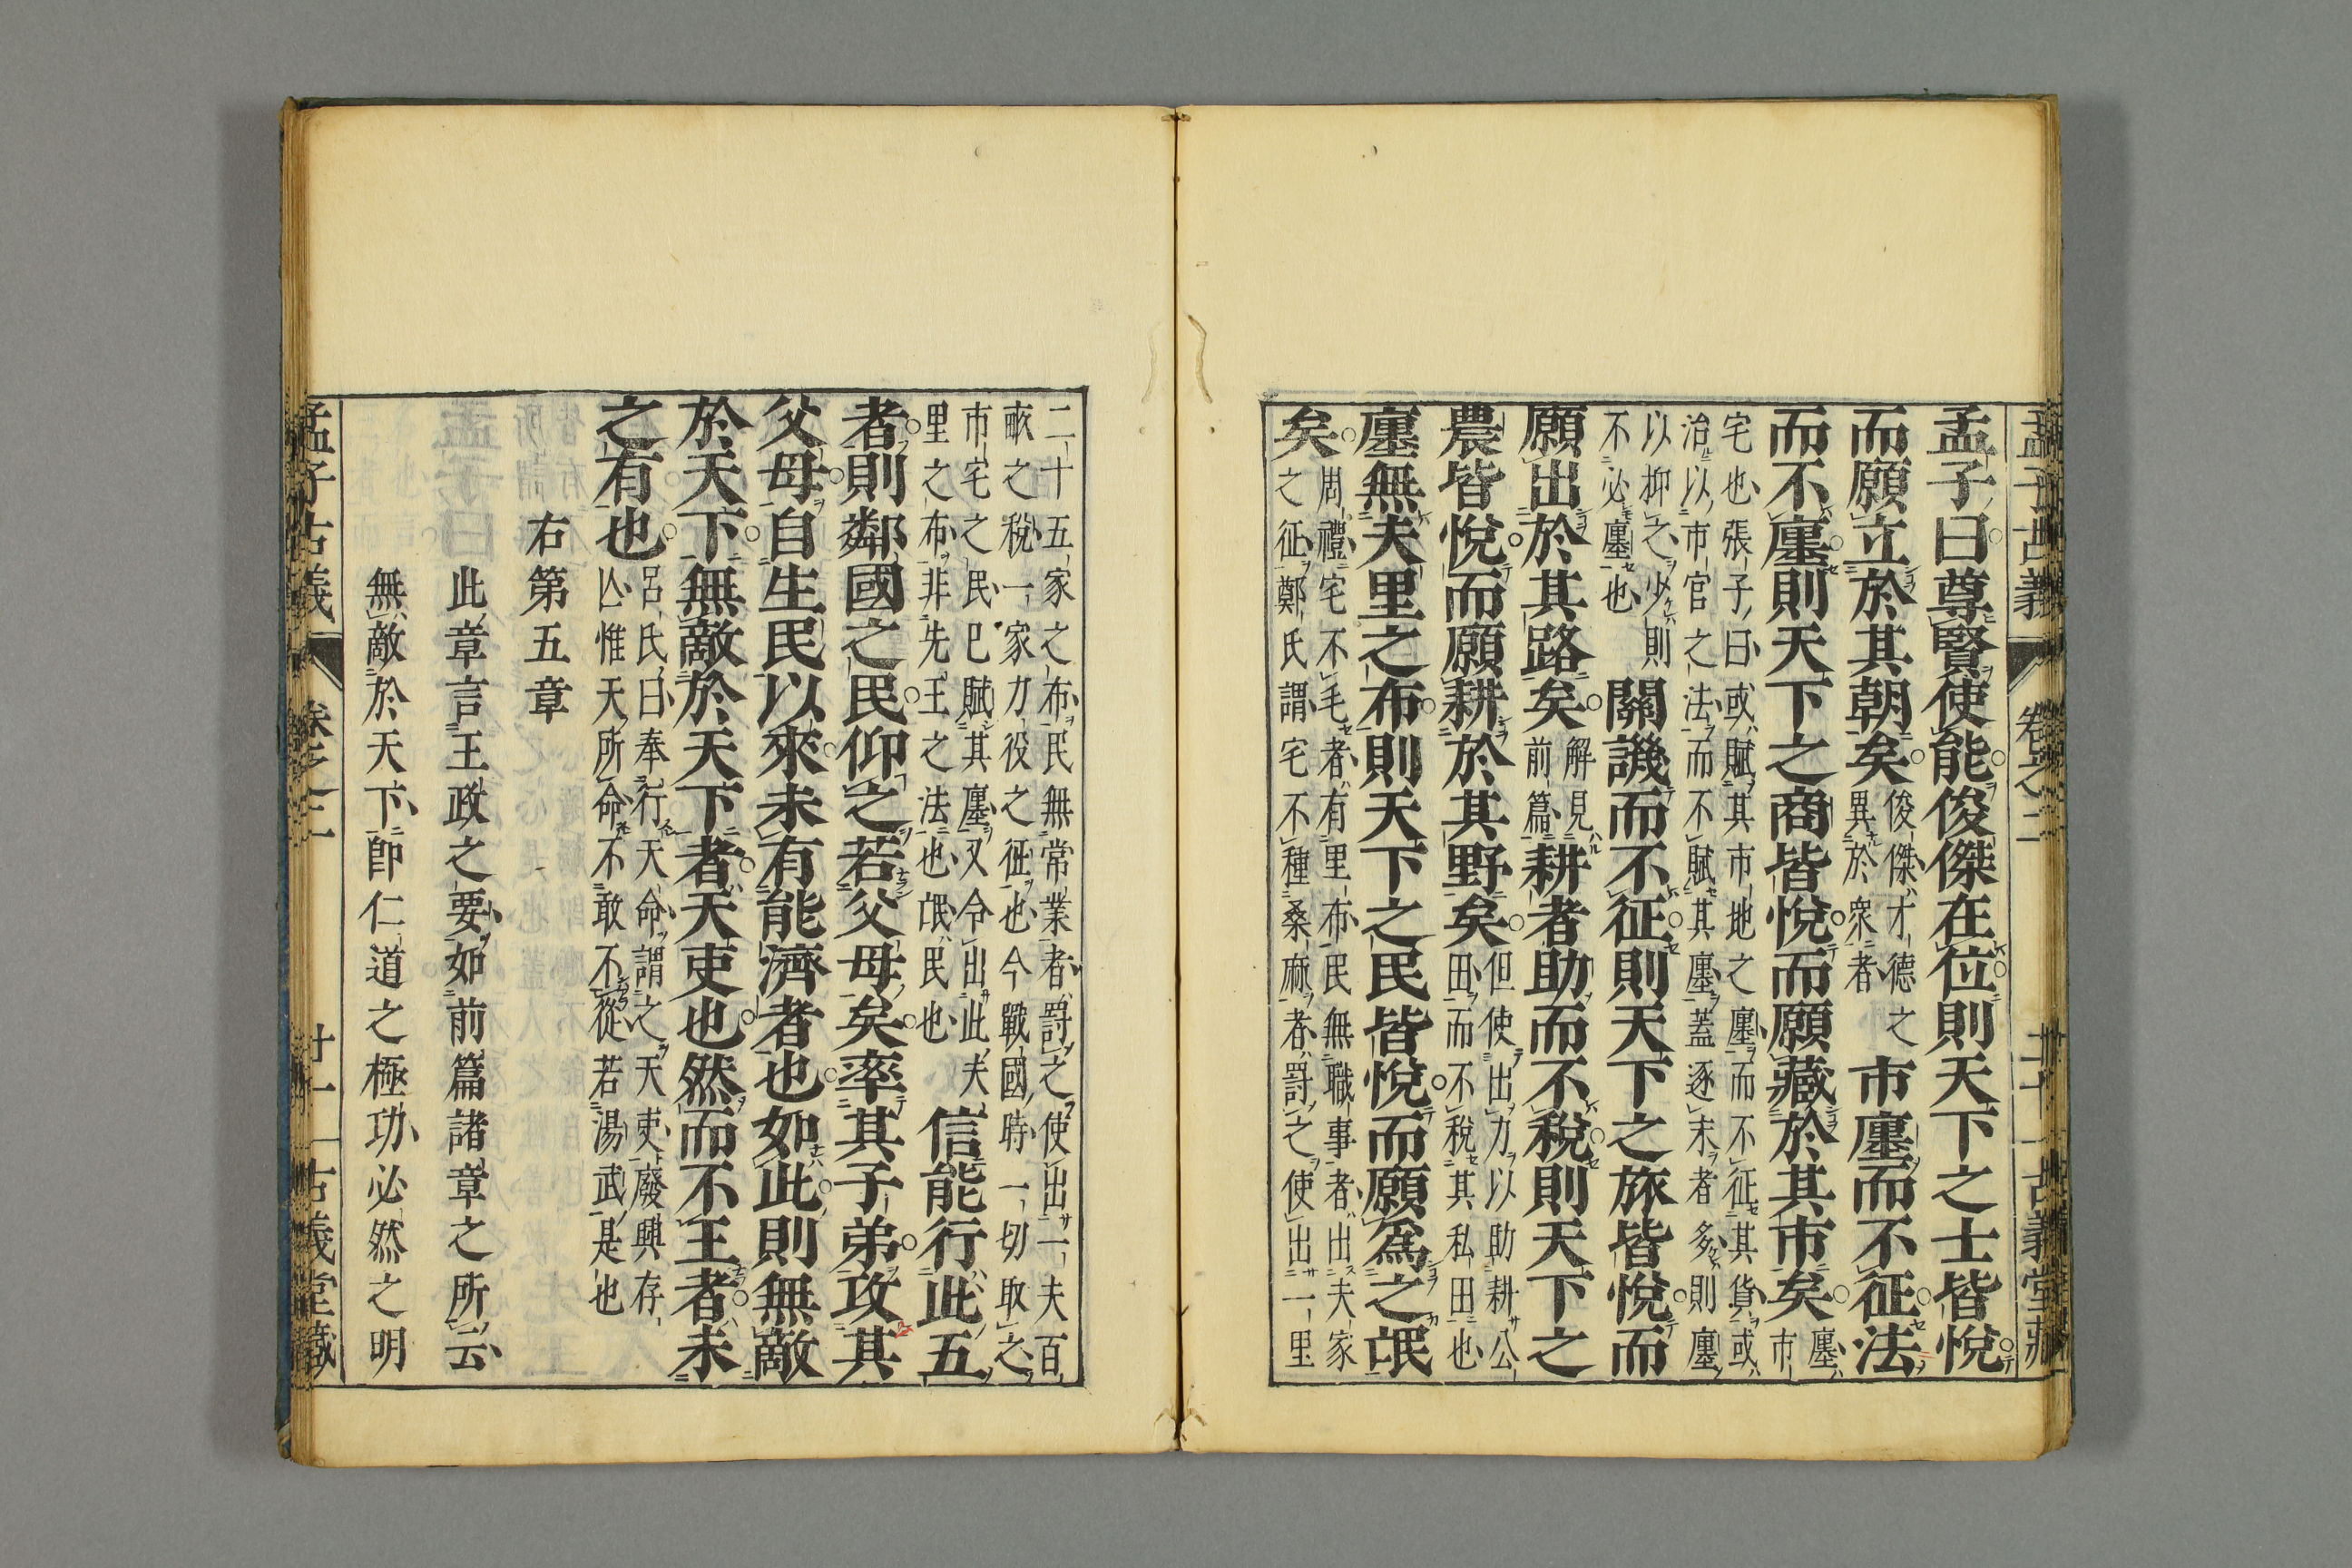 孟子曰尊賢使能俊傑在位則天下之士皆悅
而願立於其朝矣俊傑才德之異於衆者市廛而不征法
而不廛則天下之商皆悅而願藏於其市矣廛市
宅也張子曰或賦其市地之廛而不征其貨或
治以市官之法而不賦其廛蓋逐末者多則廛
以抑之少則
不必廛也
關譏而不征則天下之旅皆悅而
願出於其路矣解見前篇耕者助而不稅則天下之
農皆悅而願耕於其野矣但使出力以助耕公田而不稅其私田也
廛無夫里之布則天下之民皆悅而願爲之氓
矣周禮宅不毛者有里布民無職事者出夫家之征鄭氏謂宅不種桑麻者罰之使出一里
二十五家之布民無常業者罰之使出一夫百
畝之稅一家力役之征也今戰國時一切取之
市宅之民已賦其廛又令出此夫
里之布非先王之法也氓民也
信能行此五
者則鄰國之民仰之若父母矣率其子弟攻其
父母自生民以來未有能濟者也如此則無敵
於天下無敵於天下者天吏也然而不王者未
之有也呂氏曰奉行天命謂之天吏廢興存亾惟天所命不敢不從若湯武是也
右第五章
此章言王政之要如前篇諸章之所云
無敵於天下卽仁道之極功必然之明
孟子古義
卷之二
廿一
古義堂藏